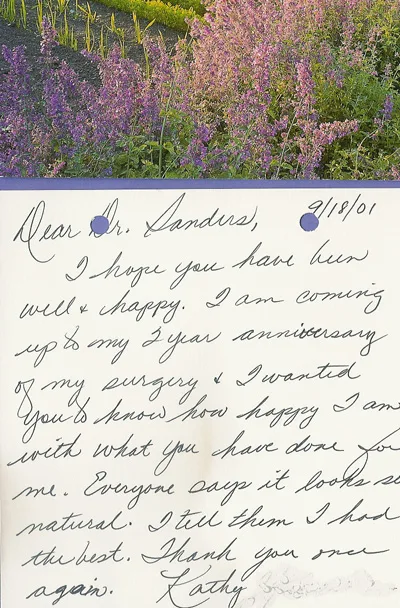 Dear Dr. Sanders,
9/18/01
I hope you have been
well & happy. I am coming
up to my 2 year anniversary
of my surgery & I wanted
you to know how happy I am
with what you have done for
me. Everyone says it looks so
natural. I tell them I had
the best. Thank you once
again. Kathy